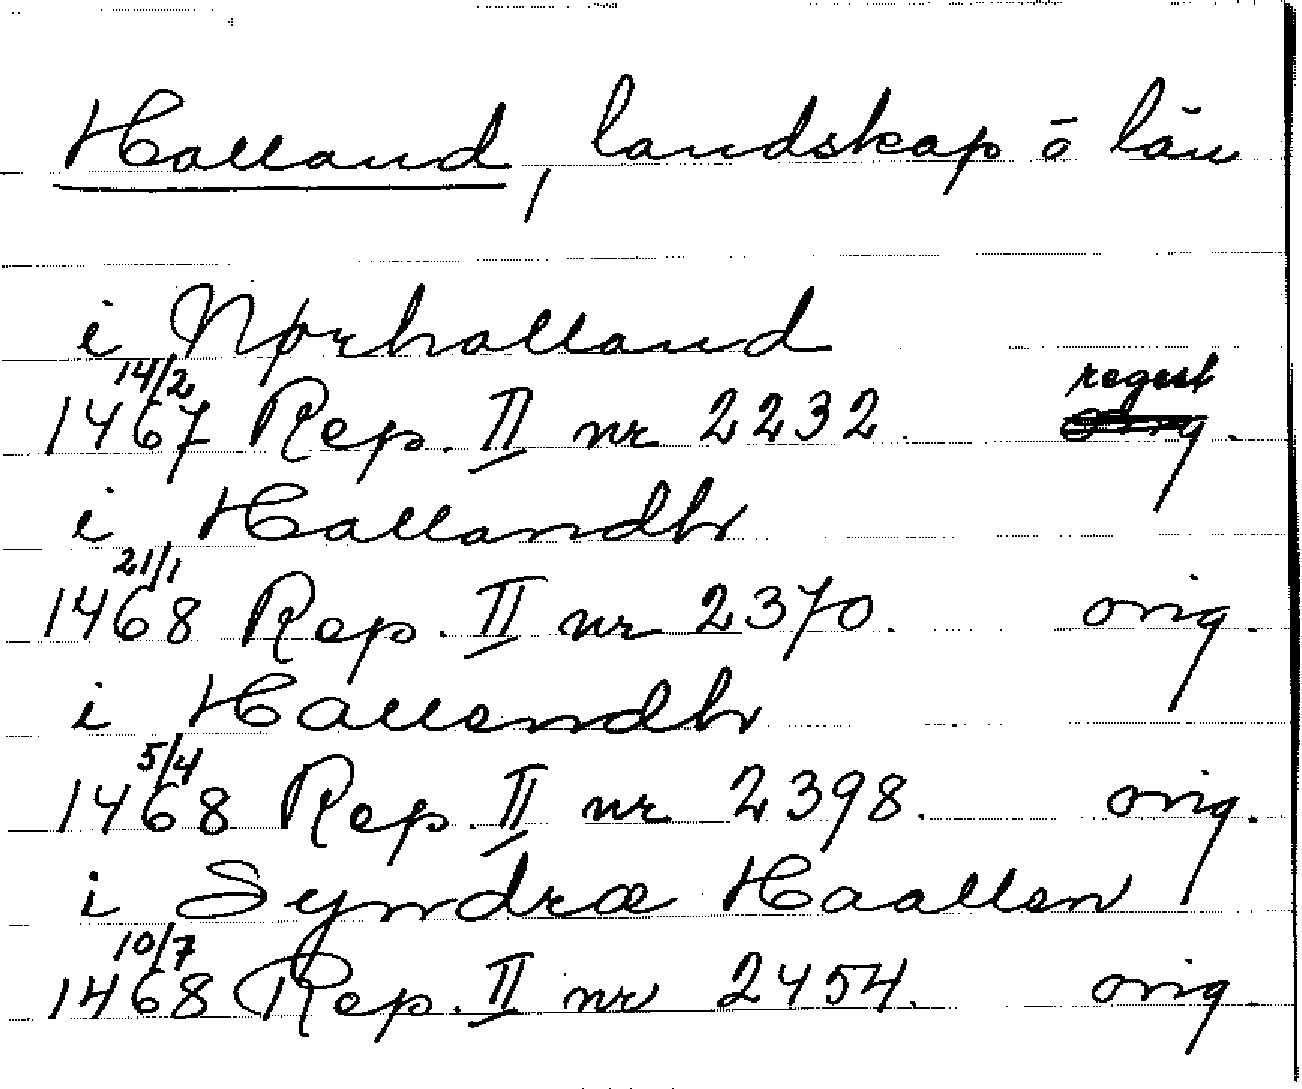 Halland, landskap ō län
i Nørhalland
14/2 regest
1467 Rep. II nr 2232. orig.
i Hallandh
21/1
1468 Rep. II nr 2370. orig.
i Hallendh
5/4
1468 Rep. II nr 2398. orig.
i Syndræ Haallen
10/7
1468 Rep. II nr 2454. orig.